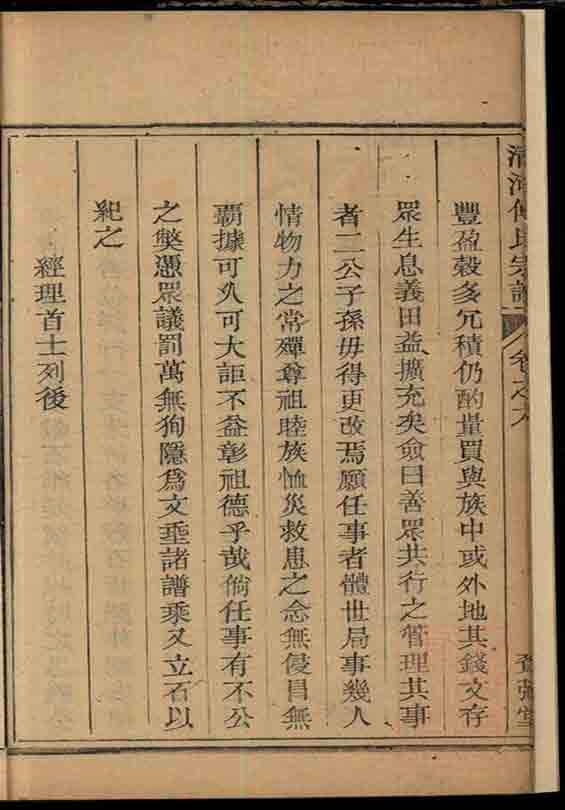 清河傅氏宗譜 卷之六
豐盈穀多冗積仍酌量買與族中或外地其錢文存
眾生息義田益擴充矣僉曰善眾共行之管理其事
者二公子孫毋得更改焉願任事者體世局事幾人
情物力之常殫尊祖睦族恤災救患之念無侵冒無
霸據可久可大詎不益彰祖德乎哉倘任事有不公
之獘憑眾議罰萬無狥隱爲文垂諸譜乘又立石以
紀之
經理首士列後